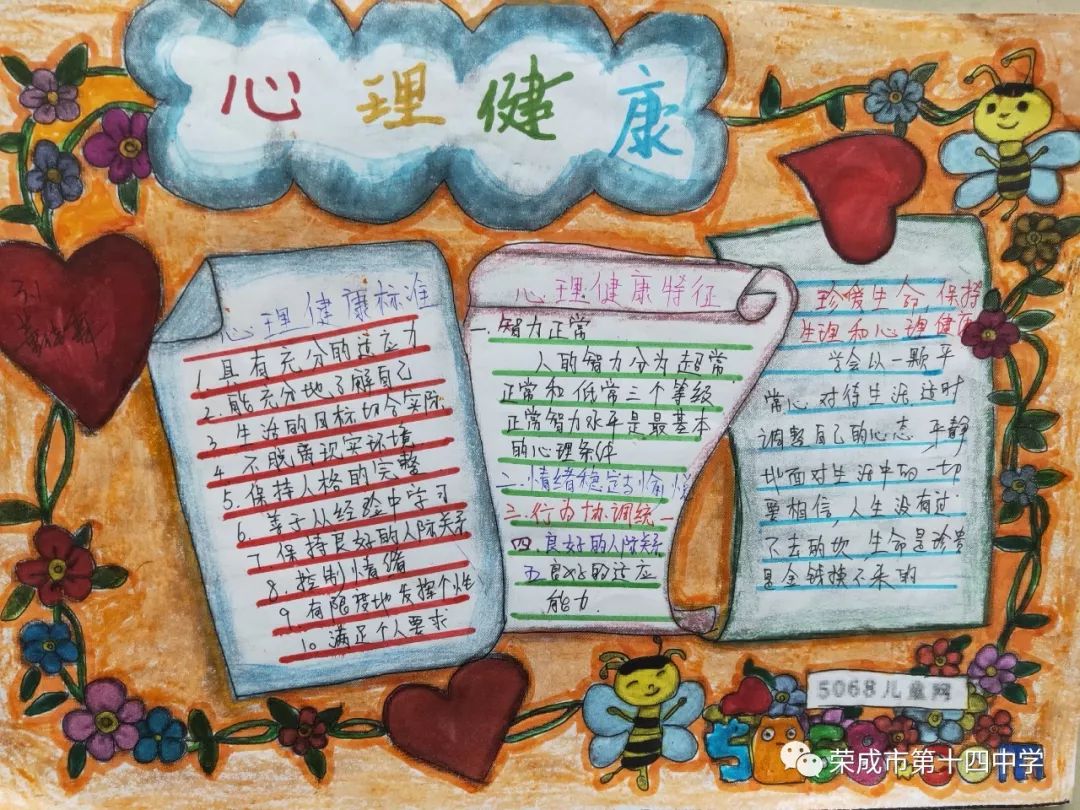 心理健康
心理健康标准
1.具有充分的适应力
2.能充分地了解自己
3.生活的目标切合实际
4.不脱离现实环境
5.保持人格的完整
6.善于从经验中学习
7.保持良好的人际关系
8.控制情绪
9.有限度地发挥个性
10.满足个人要求
心理健康特征
一.智力正常
人的智力分为超常
正常和低常三个等级
正常智力水平是最基本
的心理条件
二.情绪稳定与愉悦
三.行为协调统一
四.良好的人际关系
五.良好的适应
能力.
珍爱生命,保持
生理和心理健康
学会以一颗平
常心对待生活.这时
调整自己的心态 平静
地面对生活中的一切
要相信,人生没有过
不去的坎 生命是珍贵
是金钱换不来的
3.1
5068儿童网
荣成市第十四中学